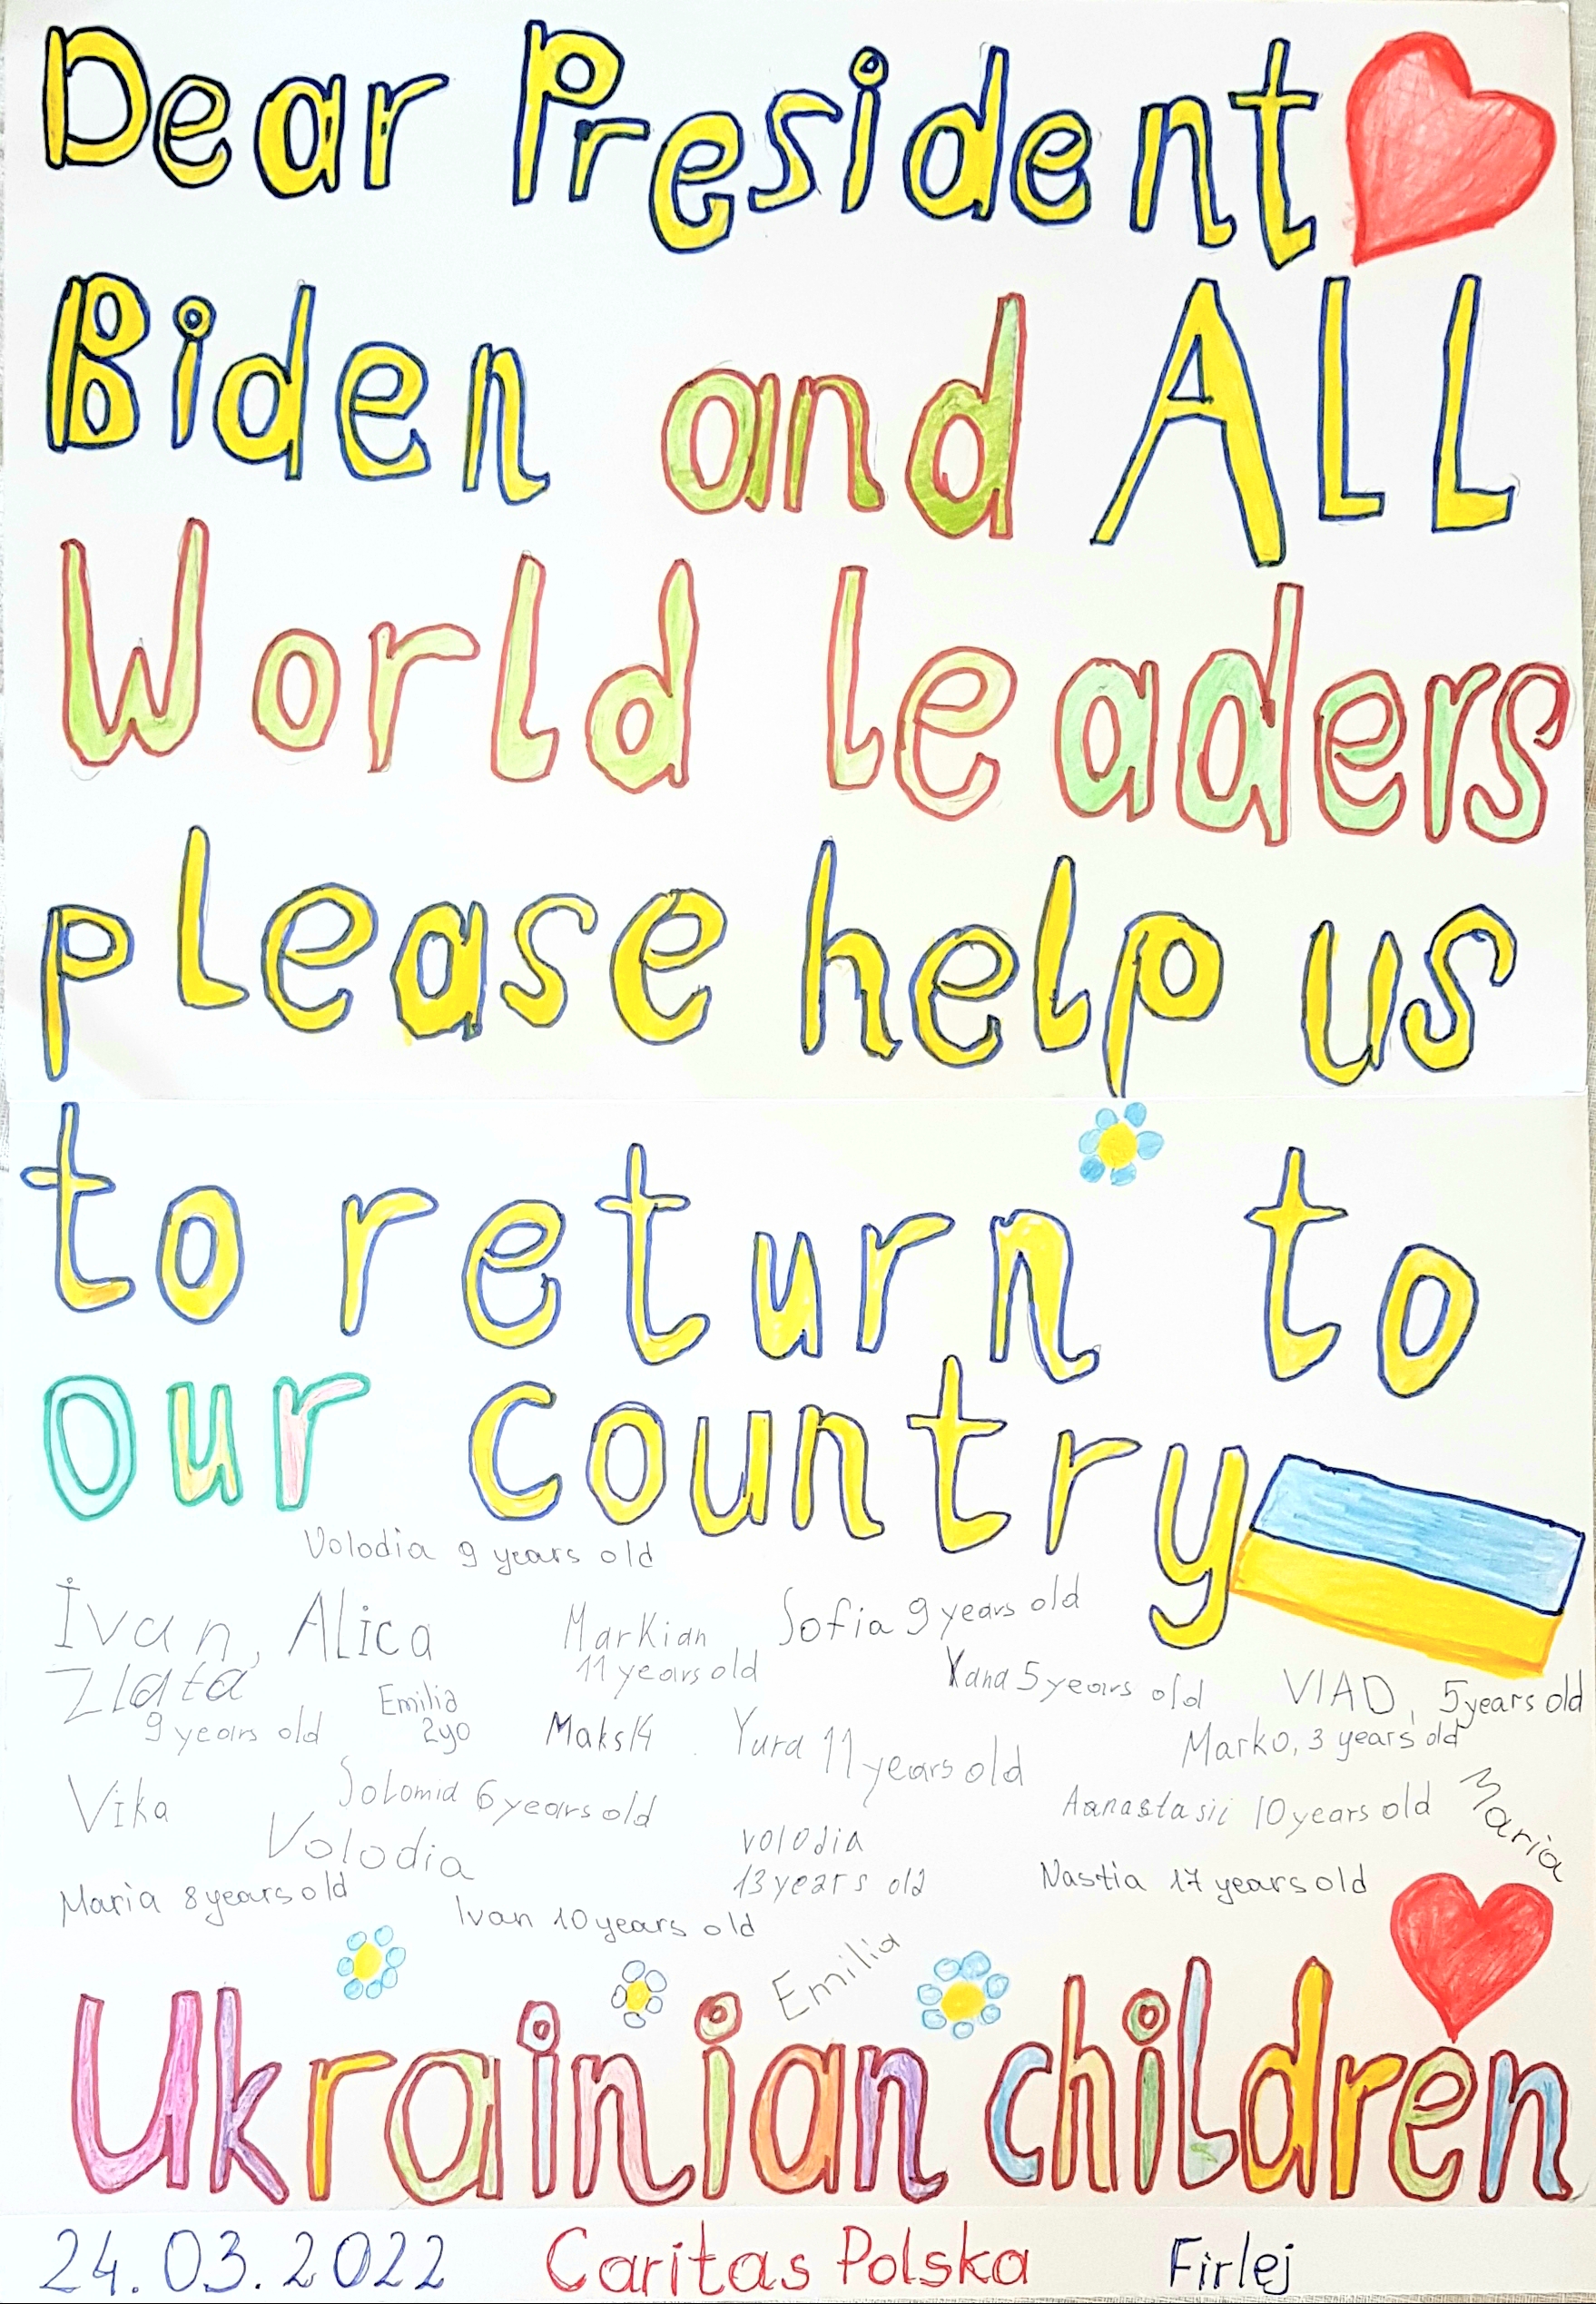 Dear President
Biden and ALL
World leaders
please help us
to return to
our country
Volodia 9 years old
Ivan, Alica
Zlata
9 years old
Emilia
2yo
Markian,
11 years old
Sofia 9 years old
Maks 14
Yura 11 years old
Yana 5 years old
VIAD, 5 years old
Marko, 3 years old
Vika
Solomia 6 years old
Volodia
volodia
13 years old
Aanastasii 10 years old
Maria
Maria 8 years old
Ivan 10 years old
Nastia 17 years old
Emilia
Ukrainian children
24.03.2022 Caritas Polska Firlej